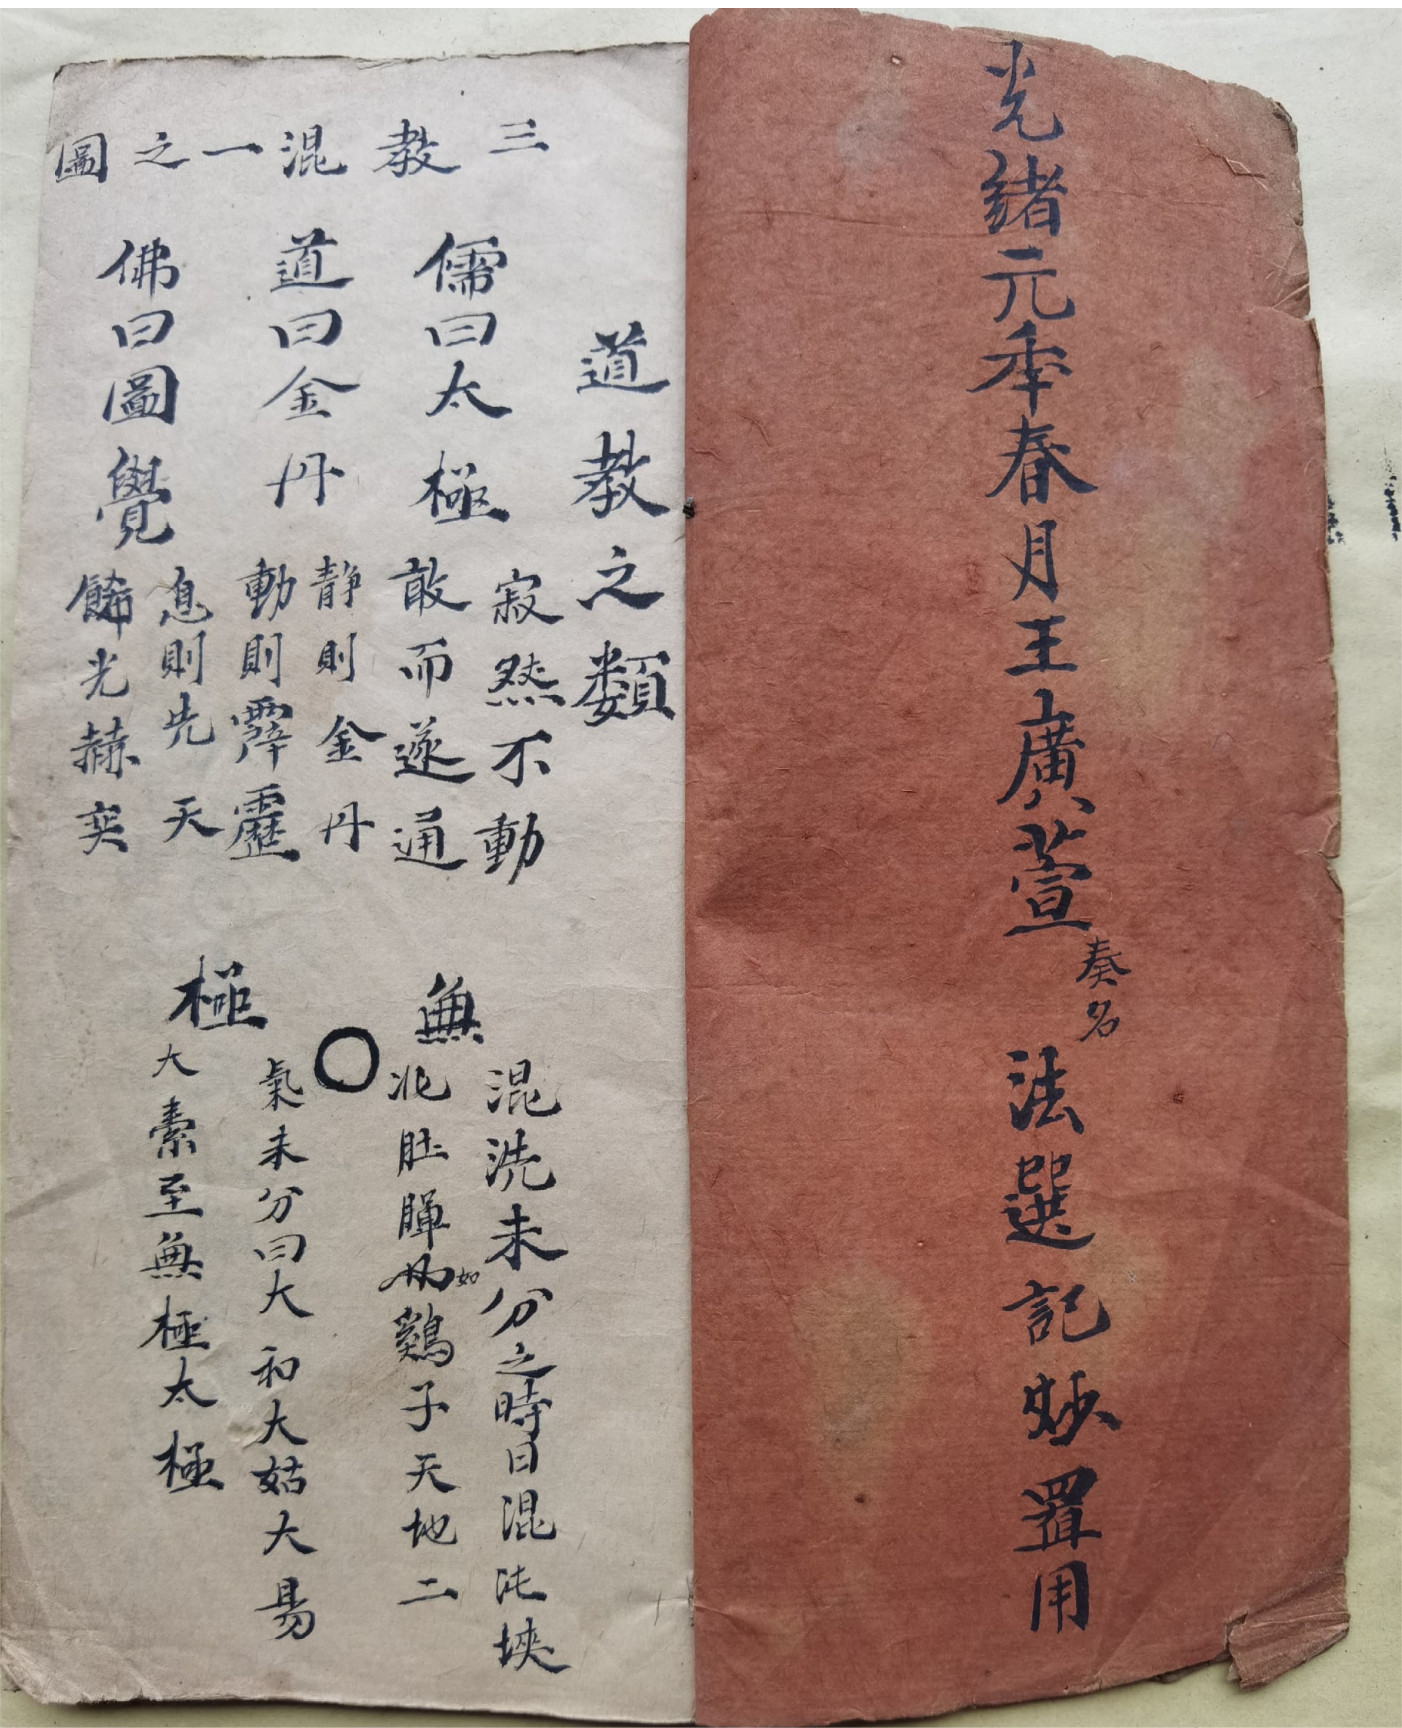 光緒元年春月王廣萱奏名法選記妙置用
道教之類
三教混一之圖
儒曰太極
寂然不動
敢而遂通
道曰金丹
静則金丹
動則霹靂
佛曰圖覺
息則先天
餙光赫奕
無極
混洗未分之時日混沌挾
兆肧腪如鷄子天地二
氣未分曰大和大姑大昜
大素至無極太極